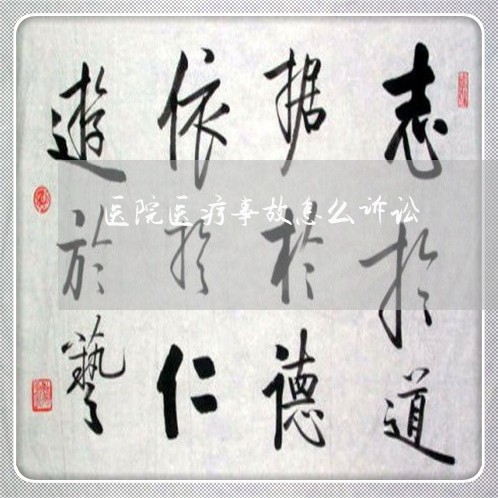 志於道
据於德
依於仁
遊於藝
医院医疗事故怎么诉讼